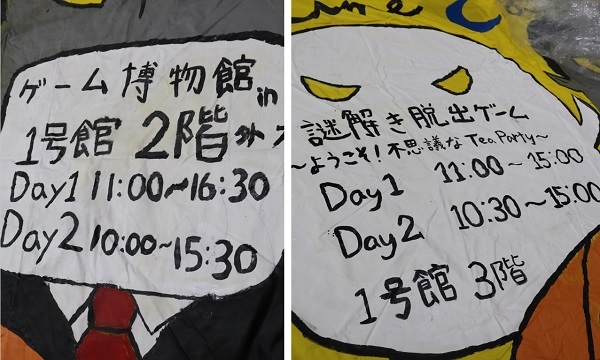 ゲーム博物館
in
1号館 2階外
Day1 11:00~16:30
Day2 10:00~15:30
謎解き脱出ゲーム
~ようこそ!不思議なTea Party~
Day1 11:00~15:00
Day2 10:30~15:00
1号館 3階